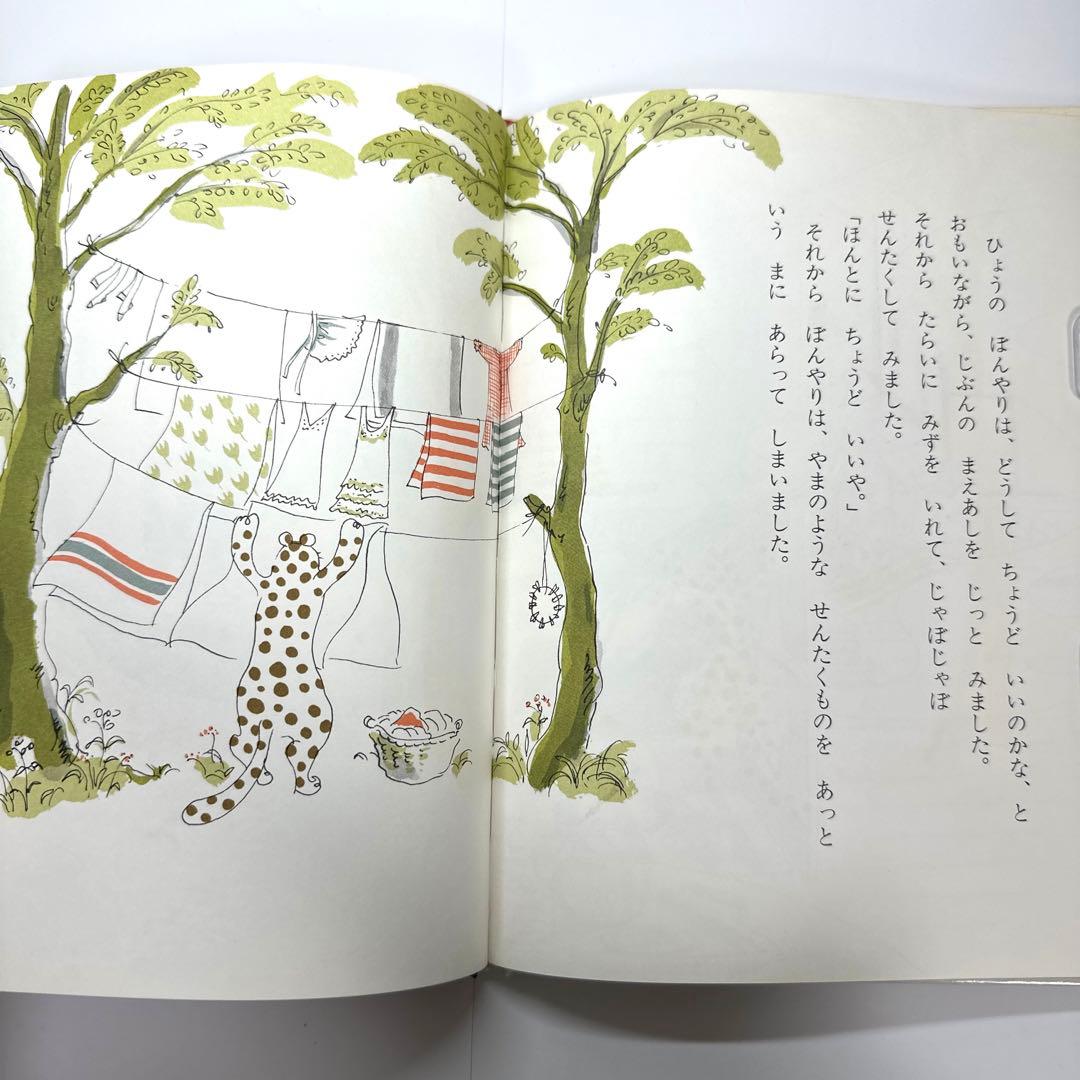 ひょうの ぼんやりは、どうして ちょうど いいのかな、と
おもいながら、じぶんの まえあしを じっと みました。
それから たらいに みずを いれて、じゃぼじゃぼ
せんたくして みました。
「ほんとに ちょうど いいや。」
それから ぼんやりは、やまのような せんたくものを あっと
いう まに あらって しまいました。